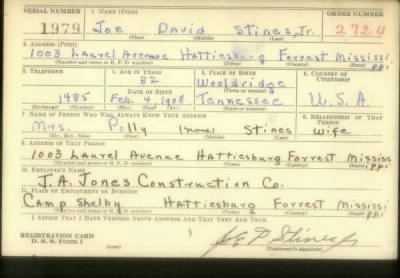 SERIAL NUMBER 1. NAME (Print) ORDER NUMBER
1979 Joe David Stines, Jr. 2724
(First) (Middle) (Last)
2. ADDRESS (Print)
1003 Laurel Avenue Hattiesburg Forrest Mississi
ppi.
(Number and street or R. F. D. number) (Town) (County) (State)
3. TELEPHONE 4. AGE IN YEARS 5. PLACE OF BIRTH 6. COUNTRY OF CITIZENSHIP
32 Wooldridge
DATE OF BIRTH (Town or county)
1485 Feb. 4, 1908 Tennessee U.S.A.
(Exchange) (Number) (Mo.) (Day) (Yr.) (State or country)
7. NAME OF PERSON WHO WILL ALWAYS KNOW YOUR ADDRESS 8. RELATIONSHIP OF THAT PERSON
Mrs. Polly (none) Stines Wife
(Mr., Mrs., Miss) (First) (Middle) (Last)
9. ADDRESS OF THAT PERSON
1003 Laurel Avenue Hattiesburg Forrest Mississi
ppi.
(Number and street or R. F. D. number) (Town) (County) (State)
10. EMPLOYER'S NAME
J.A. Jones Construction Co.
11. PLACE OF EMPLOYMENT OR BUSINESS
Camp Shelby Hattiesburg Forrest Mississi
ppi.
(Number and street or R. F. D. number) (Town) (County) (State)
I AFFIRM THAT I HAVE VERIFIED ABOVE ANSWERS AND THAT THEY ARE TRUE.
REGISTRATION CARD
D. S. S. Form 1
(Registrant's signature)